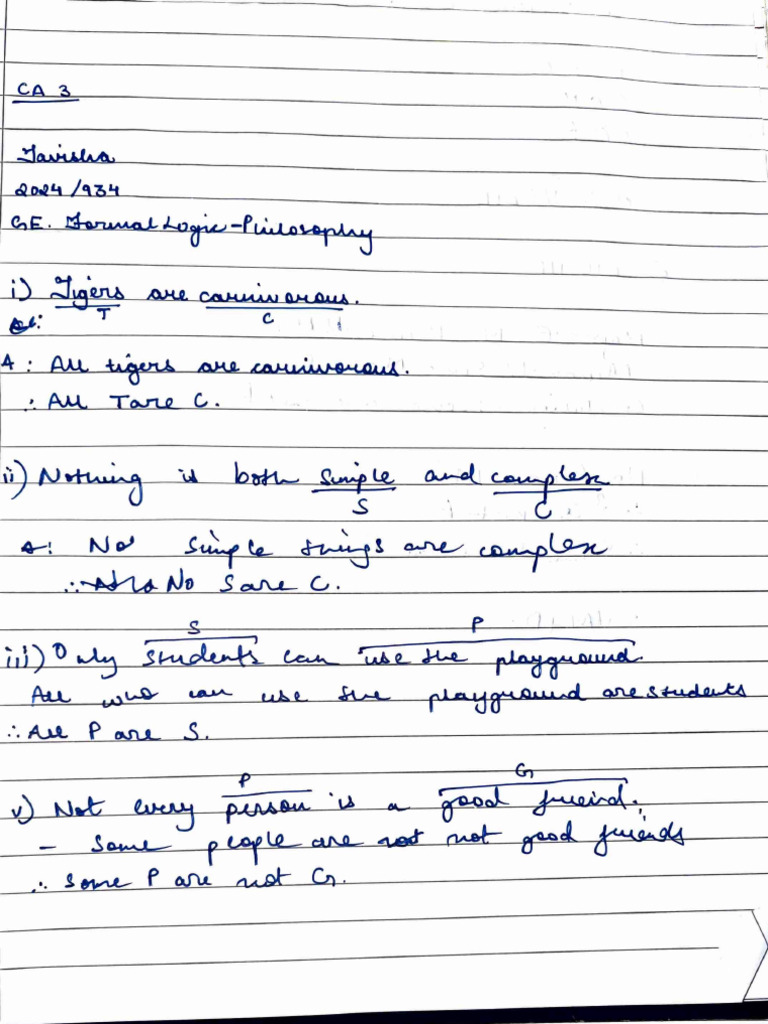 CA 3
Tavisha
2024/934
GE. Formal Logic - Philosophy
i) Tigers are carnivorous.
T C
A : All tigers are carnivorous.
∴ All T are C.
ii) Nothing is both simple and complex
S C
A: No simple things are complex
∴ No S are C.
S P
iii) Only students can use the playground.
All who can use the playground are students
∴ All P are S.
P G
v) Not every person is a good freind.
- Some people are not good friends
∴ Some P are not G.